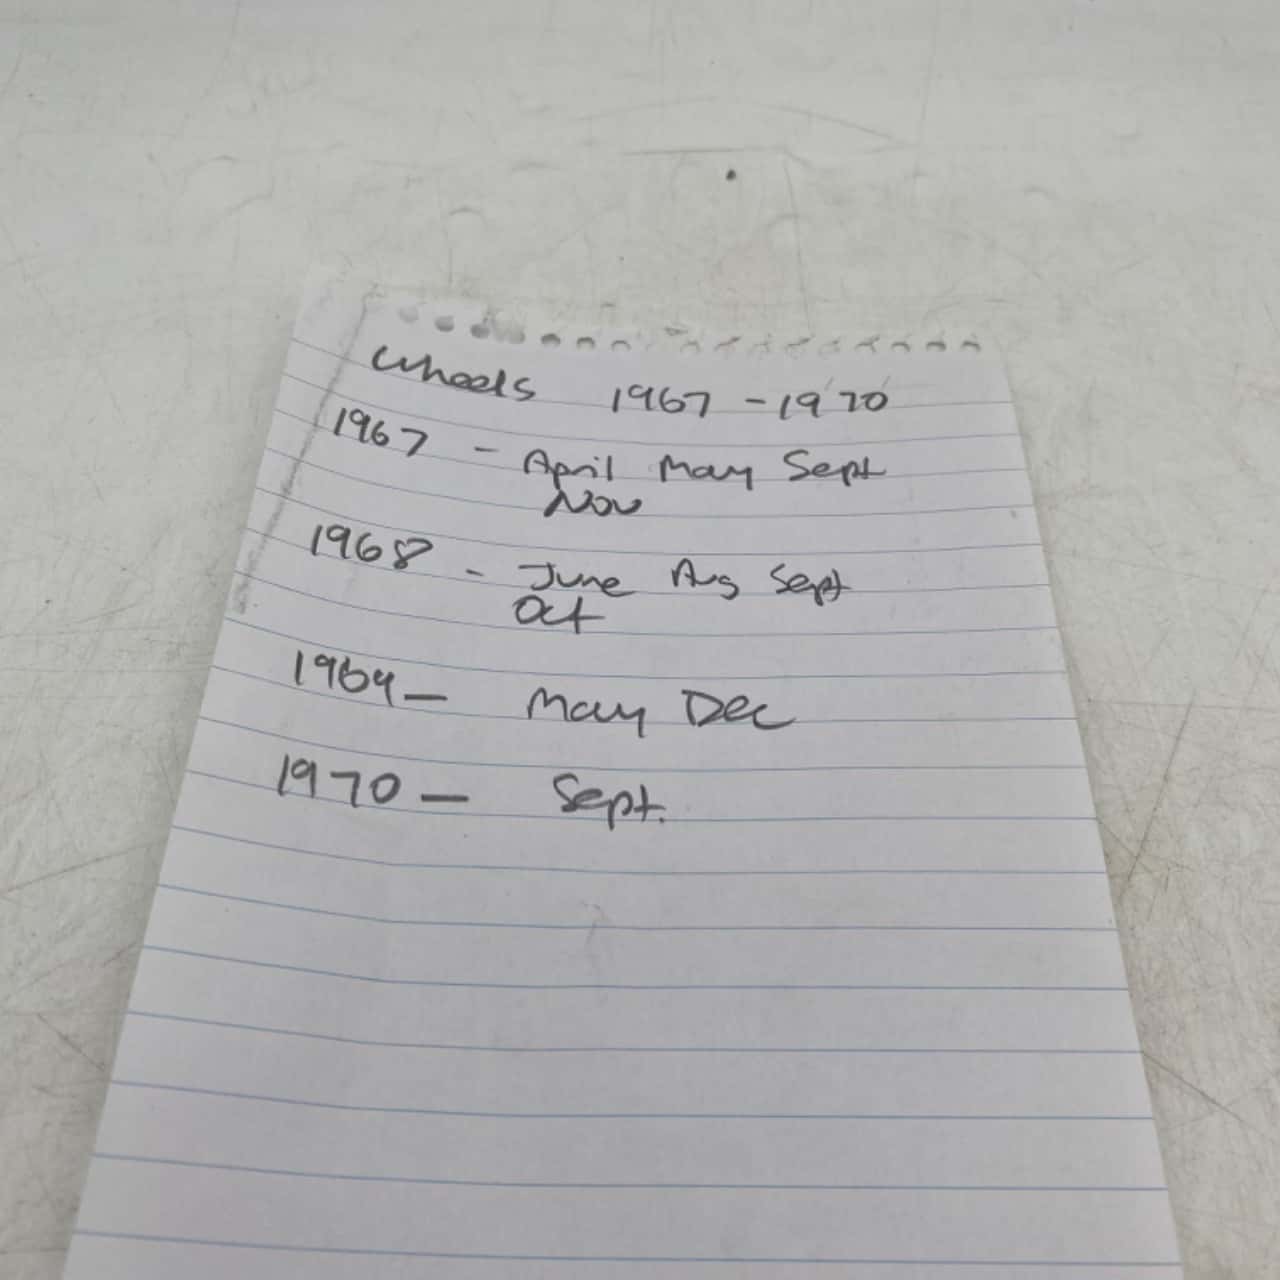 Wheels 1967 - 1970
1967 - April May Sept
Nov
1968 - June Aug Sept
Oct
1969 - May Dec
1970 - Sept.